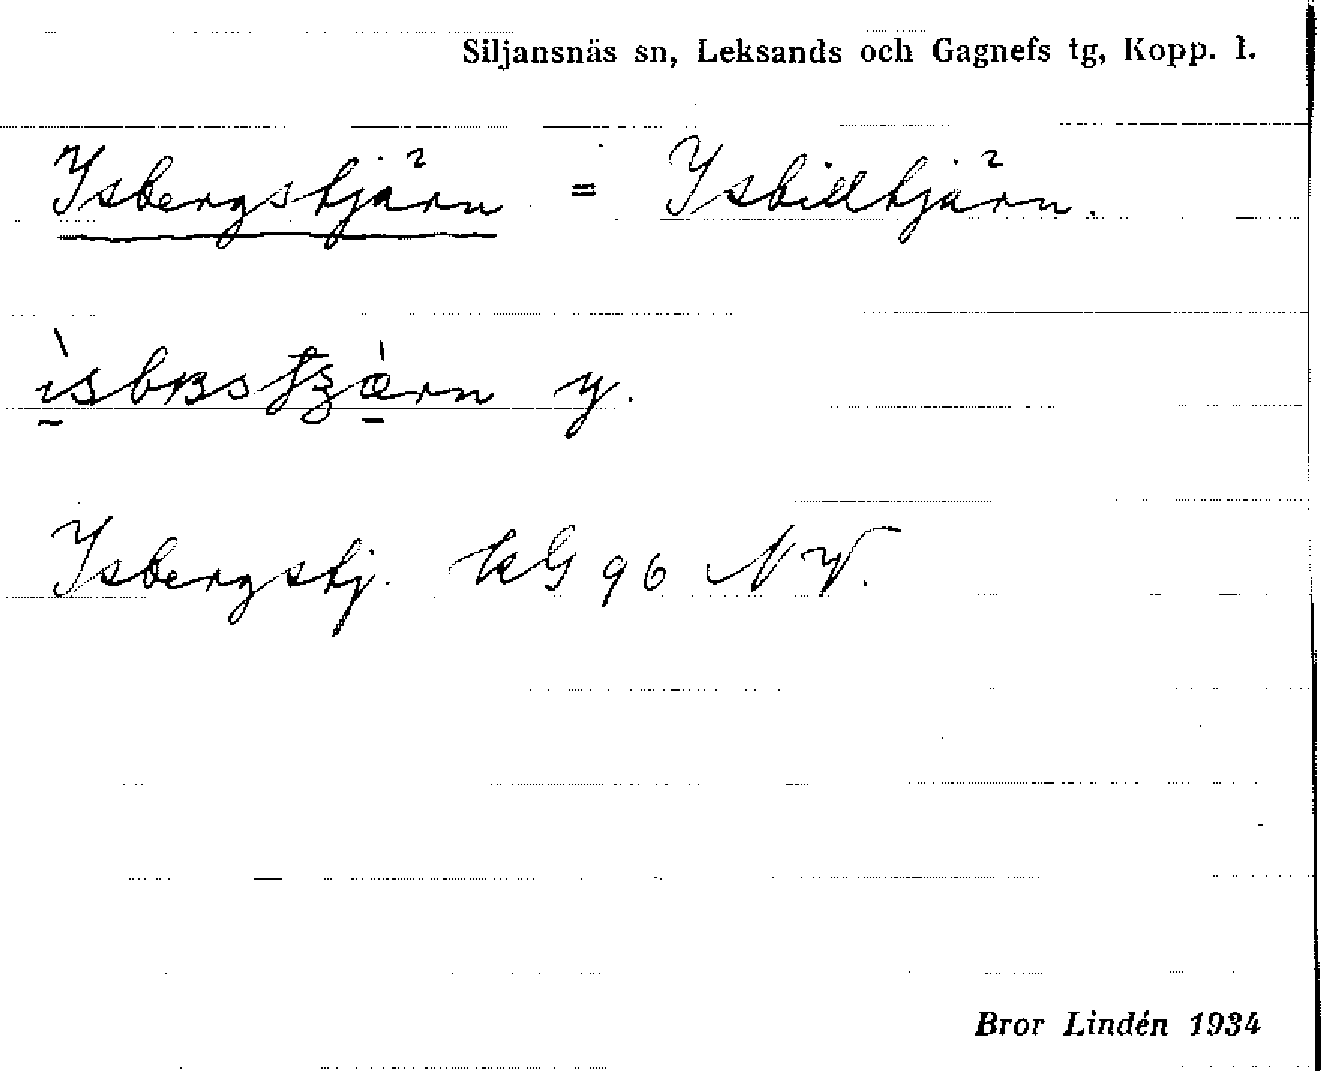 Siljansnäs sn, Leksands och Gagnefs tg, Kopp. l.
Ysbergstjärn² = Ysbilltjärn².
y.
Ysbergstj. kG 96 NV.
Bror Lindén 1934